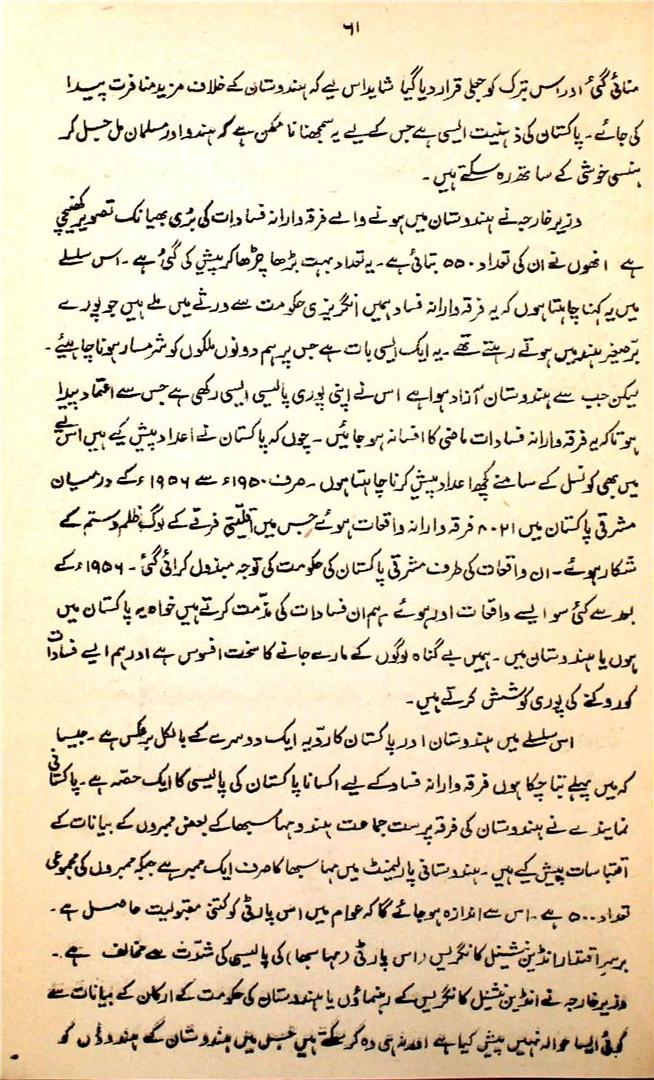 ۶۱
منائی گئی اور اس تبرک کو جعلی قرار دیا گیا شاید اس لیے کہ ہندوستان کے خلاف مزید منافرت پیدا
کی جائے ۔ پاکستان کی ذہنیت ایسی ہے جس کے لیے یہ سمجھنا نا ممکن ہے کہ ہندو اور مسلمان مل جل کر
ہنسی خوشی کے ساتھ رہ سکتے ہیں ۔
وزیر خارجہ نے ہندوستان میں ہونے والے فرقہ وارانہ فسادات کی بڑی بھیانک تصویر کھینچی
ہے انھوں نے ان کی تعداد ۵۵۰ بتائی ہے ۔ یہ تعداد بہت بڑھا چڑھا کر پیش کی گئی ہے ۔ اس سلسلے
میں یہ کہنا چاہتا ہوں کہ یہ فرقہ وارانہ فساد ہمیں انگریزی حکومت سے ورثے میں ملے ہیں جو پورے
برِّصغیر ہند میں ہوتے رہتے تھے ۔ یہ ایک ایسی بات ہے جس پر ہم دونوں ملکوں کو شرمسار ہونا چاہیئے ۔
لیکن جب سے ہندوستان آزاد ہوا ہے اس نے اپنی پوری پالیسی ایسی رکھی ہے جس سے اعتماد پیدا
ہو تاکہ یہ فرقہ وارانہ فسادات ماضی کا افسانہ ہو جائیں ۔ چوں کہ پاکستان نے اعداد پیش کیے ہیں اس لیے
میں بھی کونسل کے سامنے کچھ اعداد پیش کرنا چاہتا ہوں ۔ صرف ۱۹۵۰ء سے ۱۹۵۶ء کے درمیان
مشرقی پاکستان میں ۸۰۲۱ فرقہ وارانہ واقعات ہوئے جس میں اقلیتی فرقے کے لوگ ظلم و ستم کے
شکار ہوئے ۔ ان واقعات کی طرف مشرقی پاکستان کی حکومت کی توجہ مبذول کرائی گئی ۔ ۱۹۵۶ء کے
بعد سے کئی سو ایسے واقعات اور ہوئے ۔ ہم ان فسادات کی مذمّت کرتے ہیں خواہ یہ پاکستان میں
ہوں یا ہندوستان میں ۔ ہمیں بے گناہ لوگوں کے مارے جانے کا سخت افسوس ہے اور ہم ایسے فسادات
کو روکنے کی پوری کوشش کرتے ہیں ۔
اس سلسلے میں ہندوستان اور پاکستان کا رویہ ایک دوسرے کے بالکل برعکس ہے ۔ جیسا
کہ میں پہلے بتا چکا ہوں فرقہ وارانہ فساد کے لیے اکسانا پاکستان کی پالیسی کا ایک حصّہ ہے ۔ پاکستانی
نمایندے نے ہندوستان کی فرقہ پرست جماعت ہندو مہا سبھا کے بعض ممبروں کے بیانات کے
اقتباسات پیش کیے ہیں ۔ ہندوستانی پارلیمنٹ میں مہا سبھا کا صرف ایک ممبر ہے جبکہ ممبروں کی مجموعی
تعداد ۵۰۰ ہے ۔ اس سے اندازہ ہو جائے گا کہ عوام میں اس پارٹی کو کتنی مقبولیت حاصل ہے ۔
برسرِ اقتدار انڈین نیشنل کانگریس (اس پارٹی (مہا سبھا) کی پالیسی کی شدّت سے مخالف ہے ۔
وزیر خارجہ نے انڈین نیشنل کانگریس کے رہنماؤں یا ہندوستان کی حکومت کے ارکان کے بیانات سے
کوئی ایسا حوالہ نہیں پیش کیا ہے اور نہ ہی وہ کر سکتے ہیں جس میں ہندوستان کے ہندوؤں کو